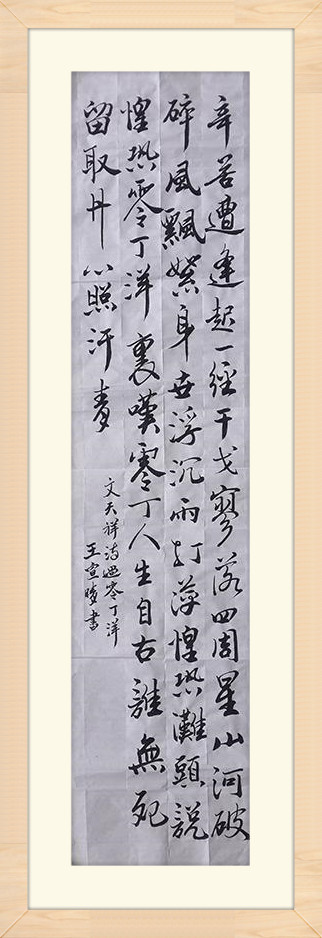 辛苦遭逢起一經干戈寥落四周星山河破
碎風飄絮身世浮沉雨打萍惶恐灘頭說
惶恐零丁洋裏嘆零丁人生自古誰無死
留取丹心照汗青
文天祥诗過零丁洋
王宣書